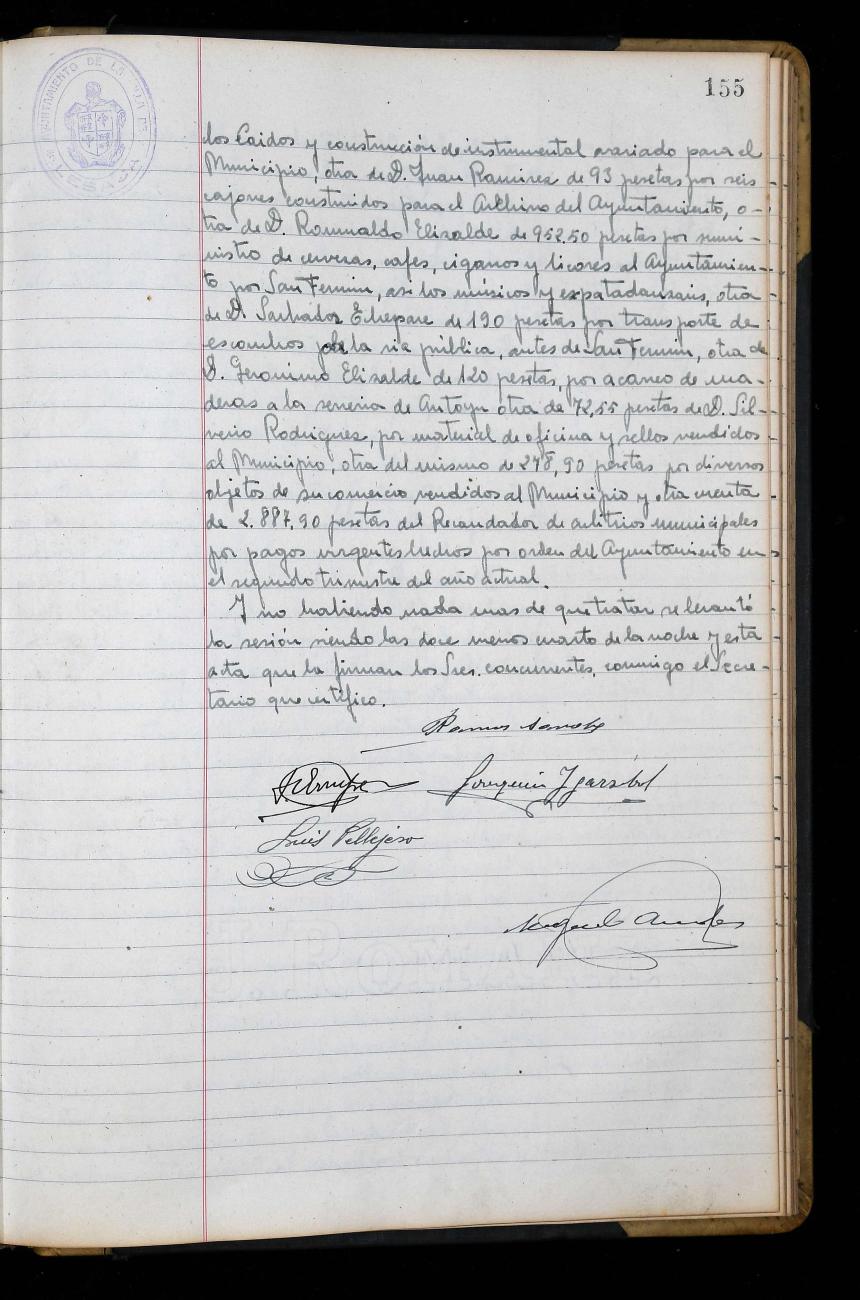 155
AYUNTAMIENTO DE LA VILLA DE
LESACA
los Caidos y construcción de instrumental variado para el
Municipio, otra de D. Juan Ramirez de 93 pesetas por seis
cajones construidos para el Archivo del Ayuntamiento, o-
tra de D. Romualdo Elizalde de 952,50 pesetas por sumi-
nistro de cervezas, cafes, cigarros y licores al Ayuntamien-
to por San Fermin, asi los músicos y espatadanzaris, otra
de D. Salvador Echepare de 190 pesetas por transporte de
escombros de la via pública, antes de San Fermin, otra de
D. Geronimo Elizalde de 120 pesetas, por acarreo de ma-
deras a la serreria de Antoyn otra de 72,55 pesetas de D. Sil-
verio Rodriguez, por material de oficina y sellos vendidos
al Municipio, otra del mismo de 278,90 pesetas por diversos
objetos de su comercio vendidos al Municipio y otra cuenta
de 2.887,90 pesetas del Recaudador de arbitrios municipales
por pagos urgentes hechos por orden del Ayuntamiento en
el segundo trimestre del año actual.
Y no habiendo nada mas de que tratar se levantó
la sesión siendo las doce menos cuarto de la noche y esta
acta que la firman los Sres. concurrentes, conmigo el Secre-
tario que certifico.
Joaquin Ygarabal
Luis Pellejero
Miguel